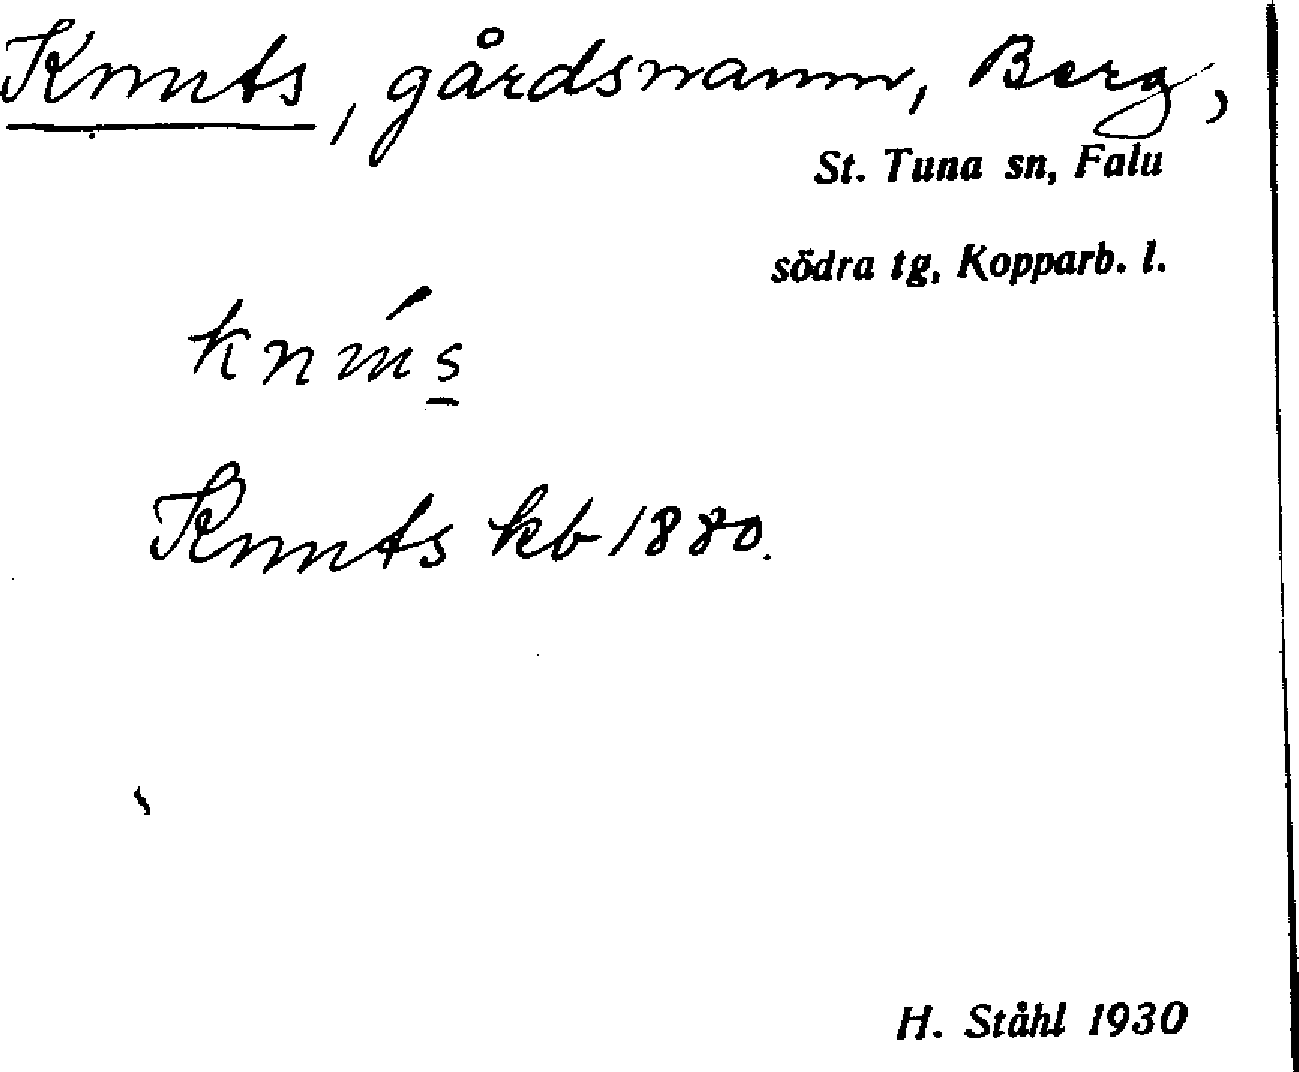 Knuts, gårdsnamn, Berg,
St. Tuna sn, Falu
södra tg, Kopparb. l.
Knuts kb 1880.
H. Ståhl 1930